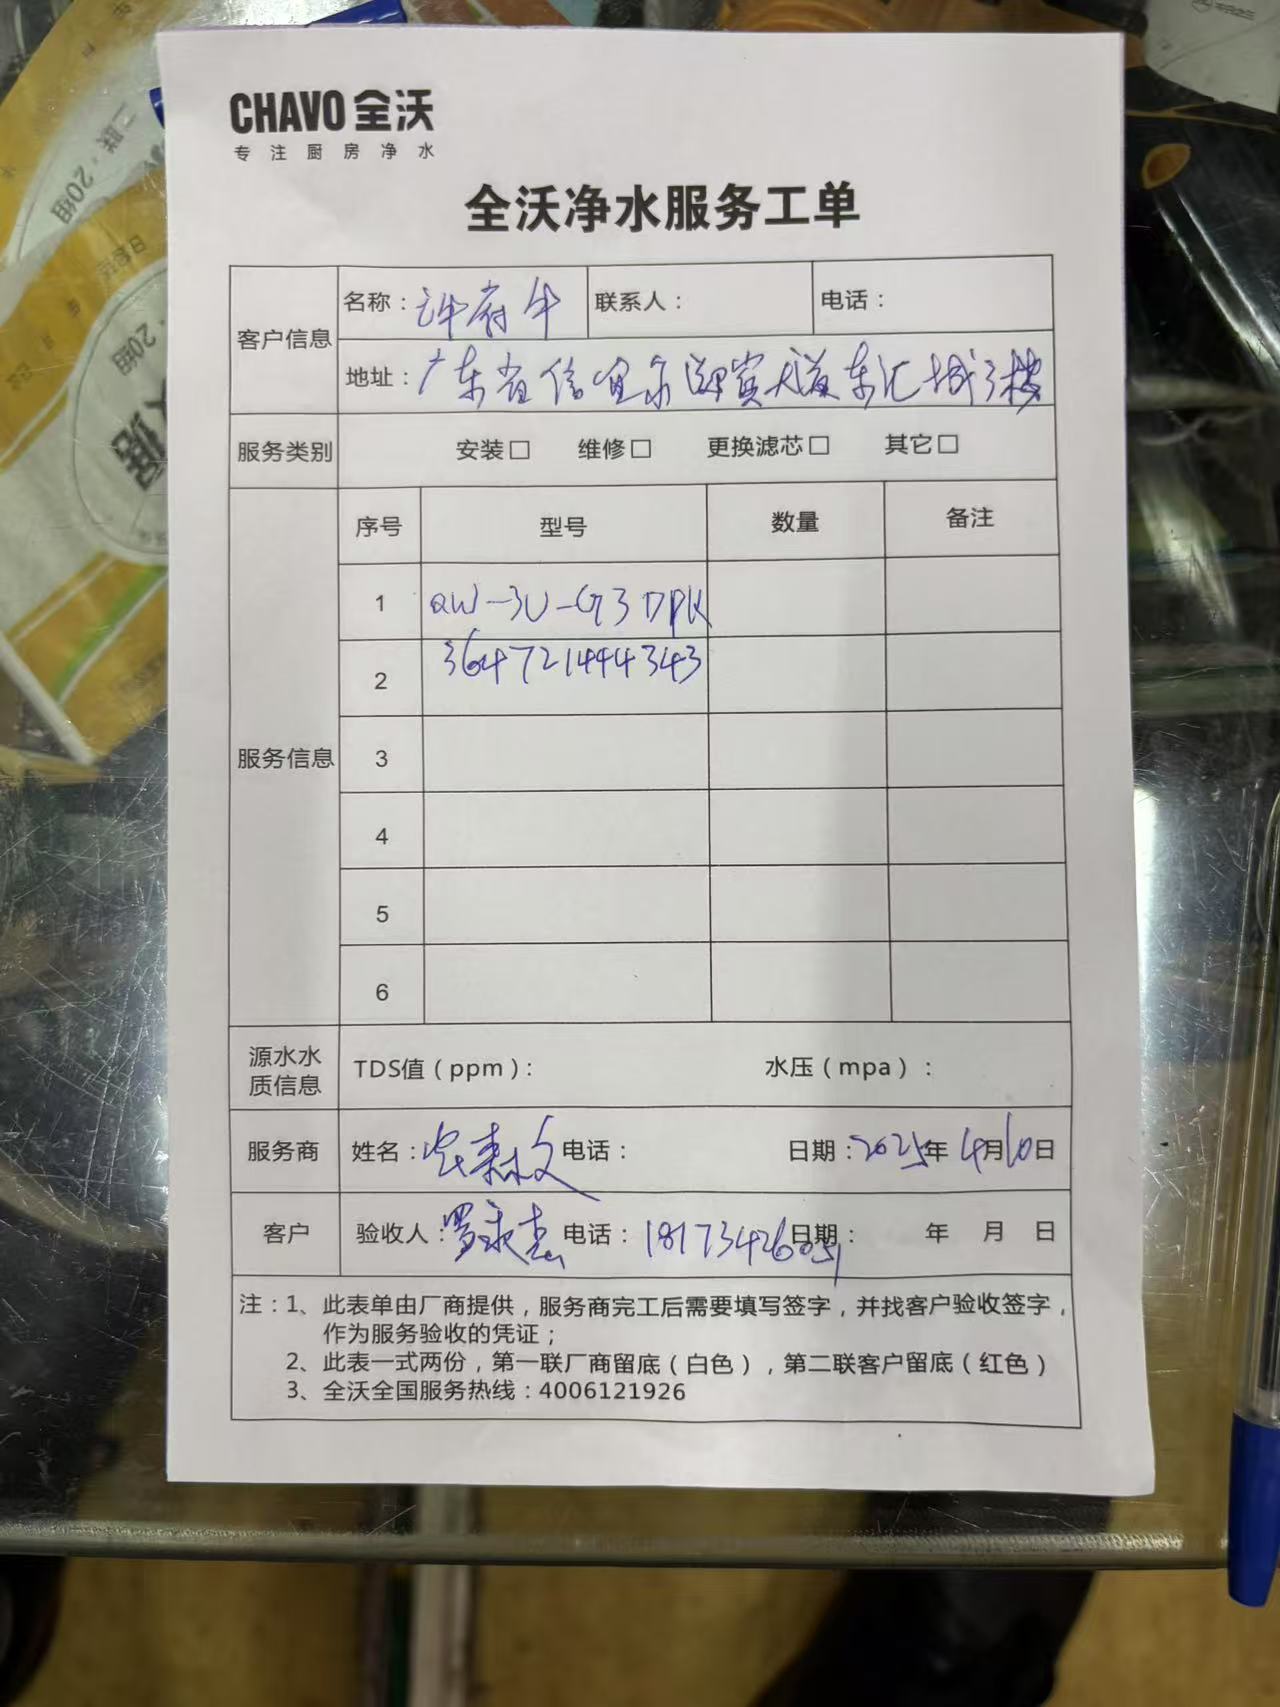 CHAVO 全沃
专注厨房净水
全沃净水服务工单
客户信息
名称：许府牛
联系人：
电话：
地址：广东省信宜市迎宾大道东汇城3楼
服务类别
安装□ 维修□ 更换滤芯□ 其它□
服务信息
序号 型号 数量 备注
1 QW-3U-G3DPK
2 364721444343
3
4
5
6
源水水质信息
TDS值（ppm）：
水压（mpa）：
服务商
姓名： 森文
电话：
日期：2025年4月10日
客户
验收人：罗永志
电话：18173426051
日期： 年 月 日
注：1、此表单由厂商提供，服务商完工后需要填写签字，并找客户验收签字，
作为服务验收的凭证；
2、此表一式两份，第一联厂商留底（白色），第二联客户留底（红色）
3、全沃全国服务热线：4006121926
二联·20组
20组